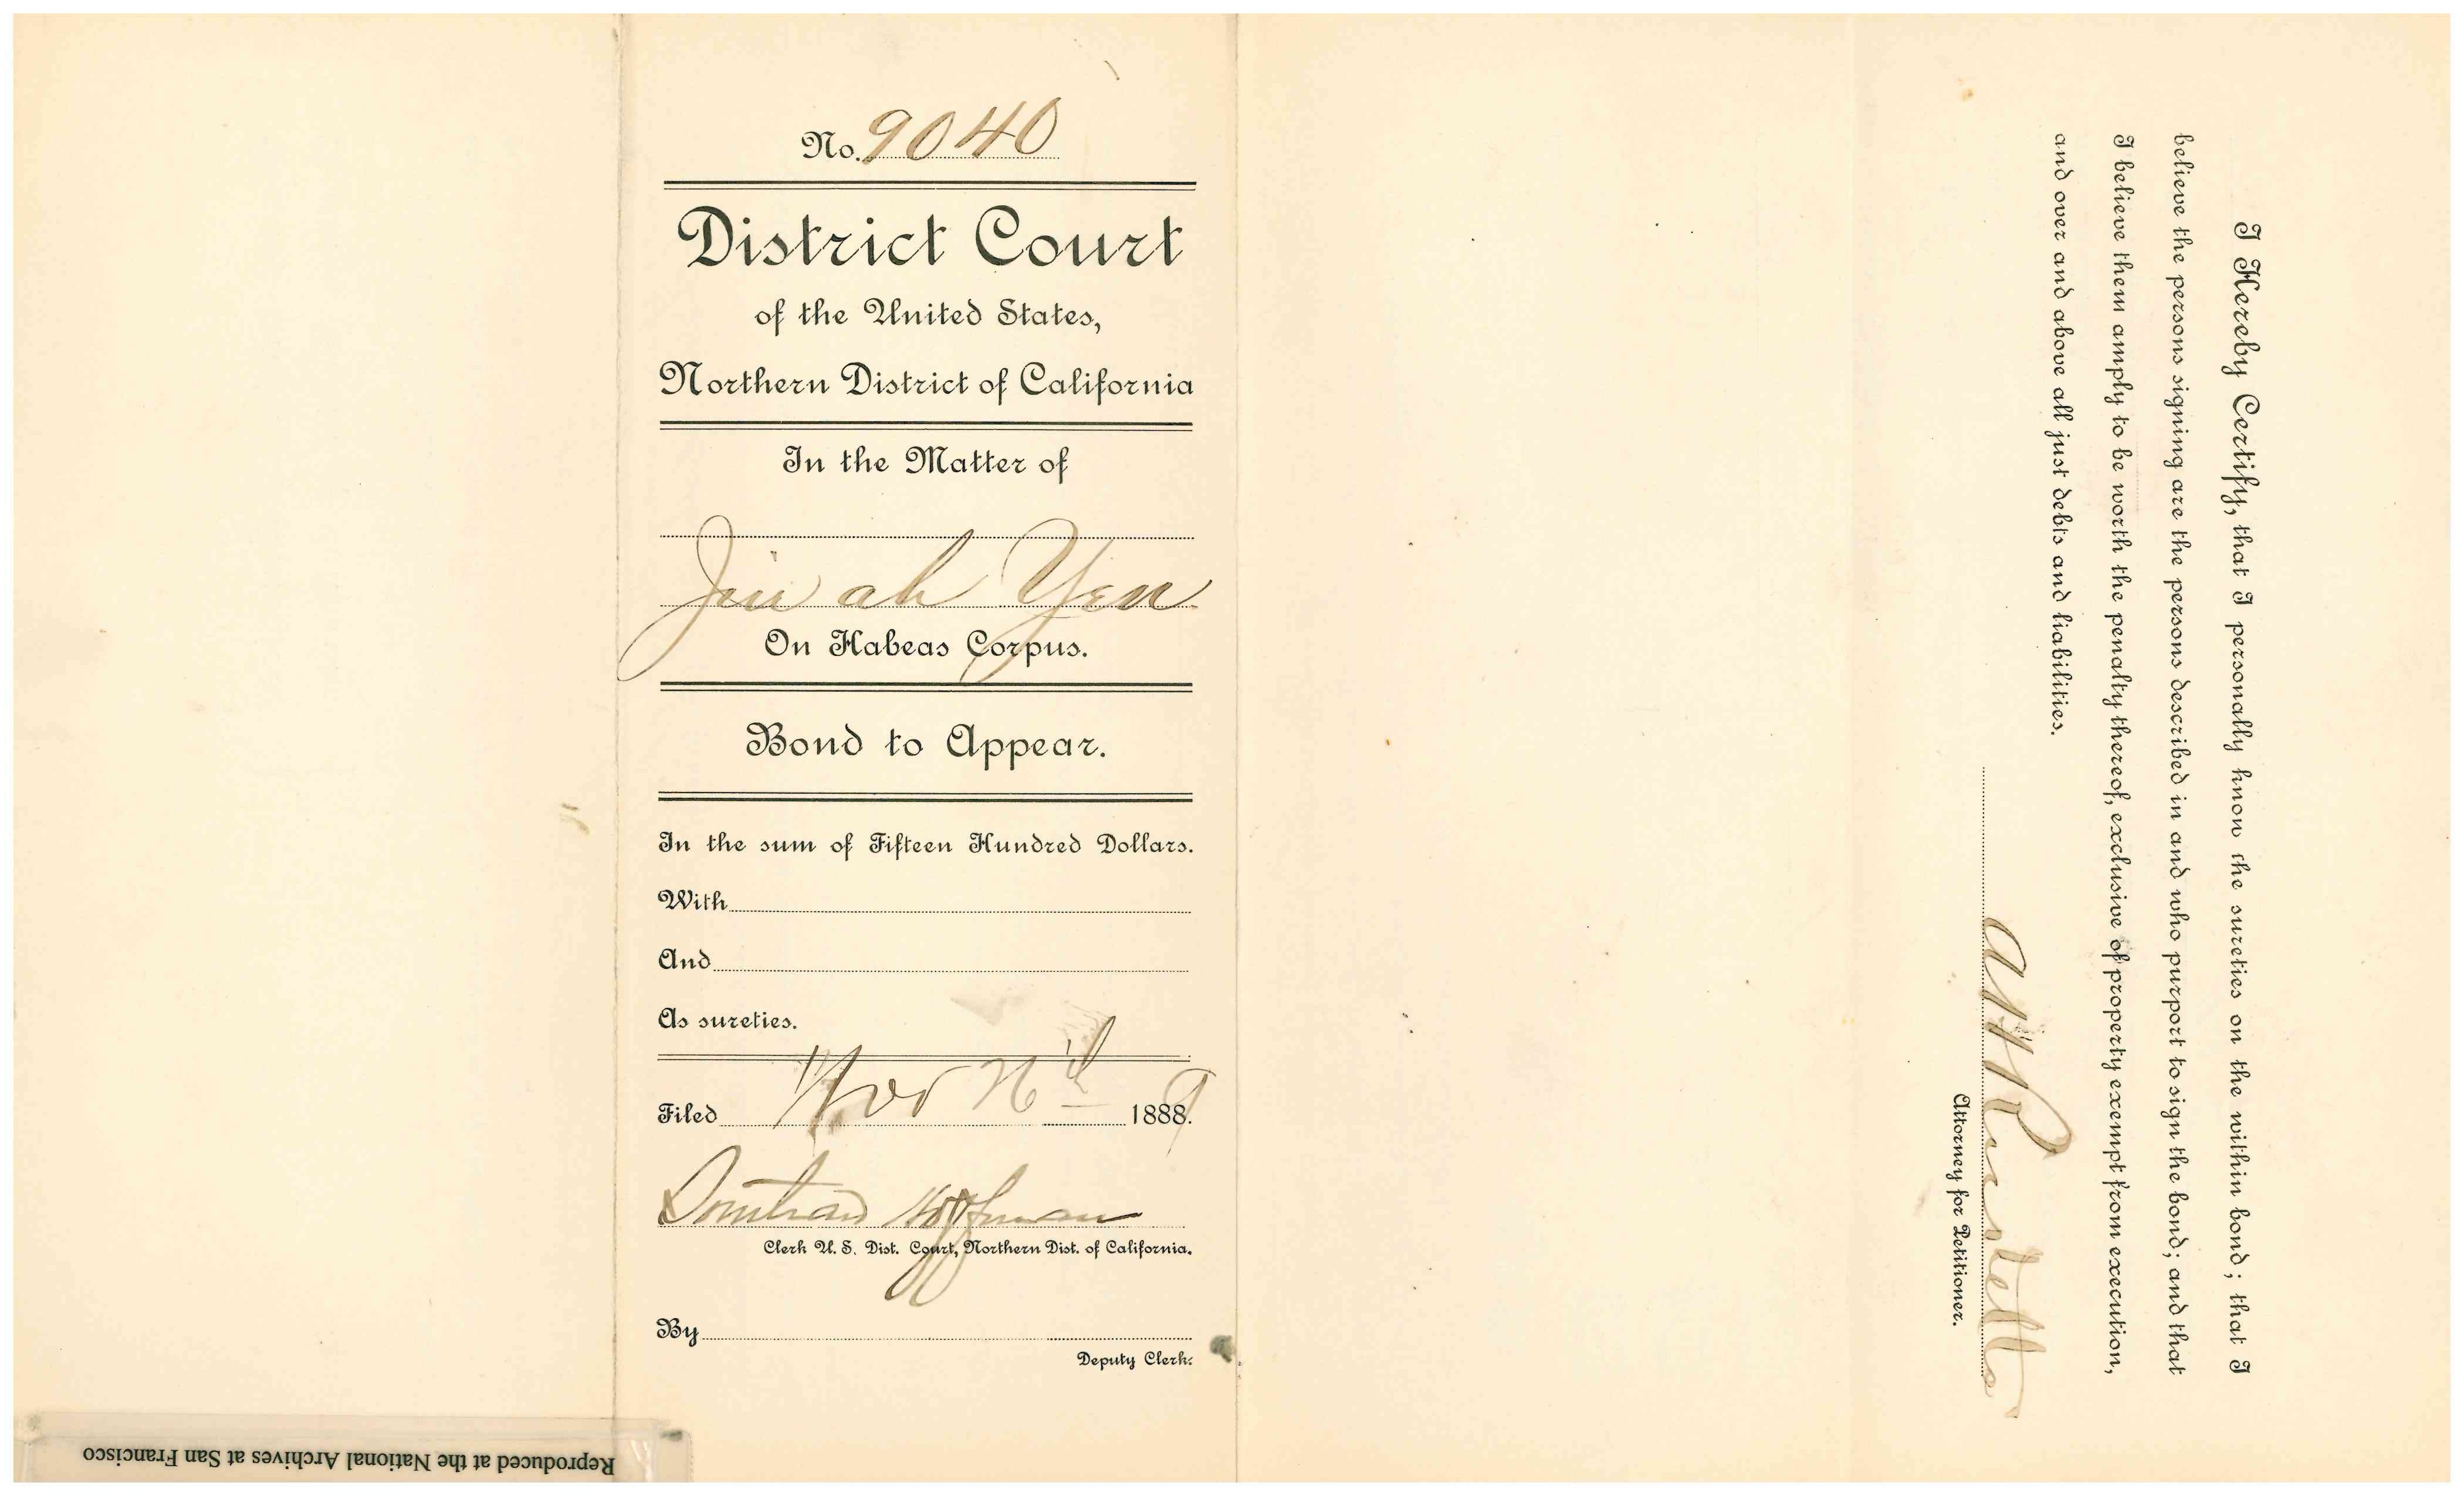 No. 9040
District Court
of the United States,
Northern District of California
In the Matter of
Jow ah Yen
On Habeas Corpus.
Bond to Appear.
In the sum of Fifteen Hundred Dollars.
With
And
As sureties.
Filed Nov 1888.
Hoffman
Clerk U. S. Dist. Court, Northern Dist. of California.
By
Deputy Clerk.
I Hereby Certify, that I personally know the sureties on the within bond; that I
believe the persons signing are the persons described in and who purport to sign the bond; and that
I believe them amply to be worth the penalty thereof, exclusive of property exempt from execution,
and over and above all just debts and liabilities.
Attorney for Petitioner.
Reproduced at the National Archives at San Francisco